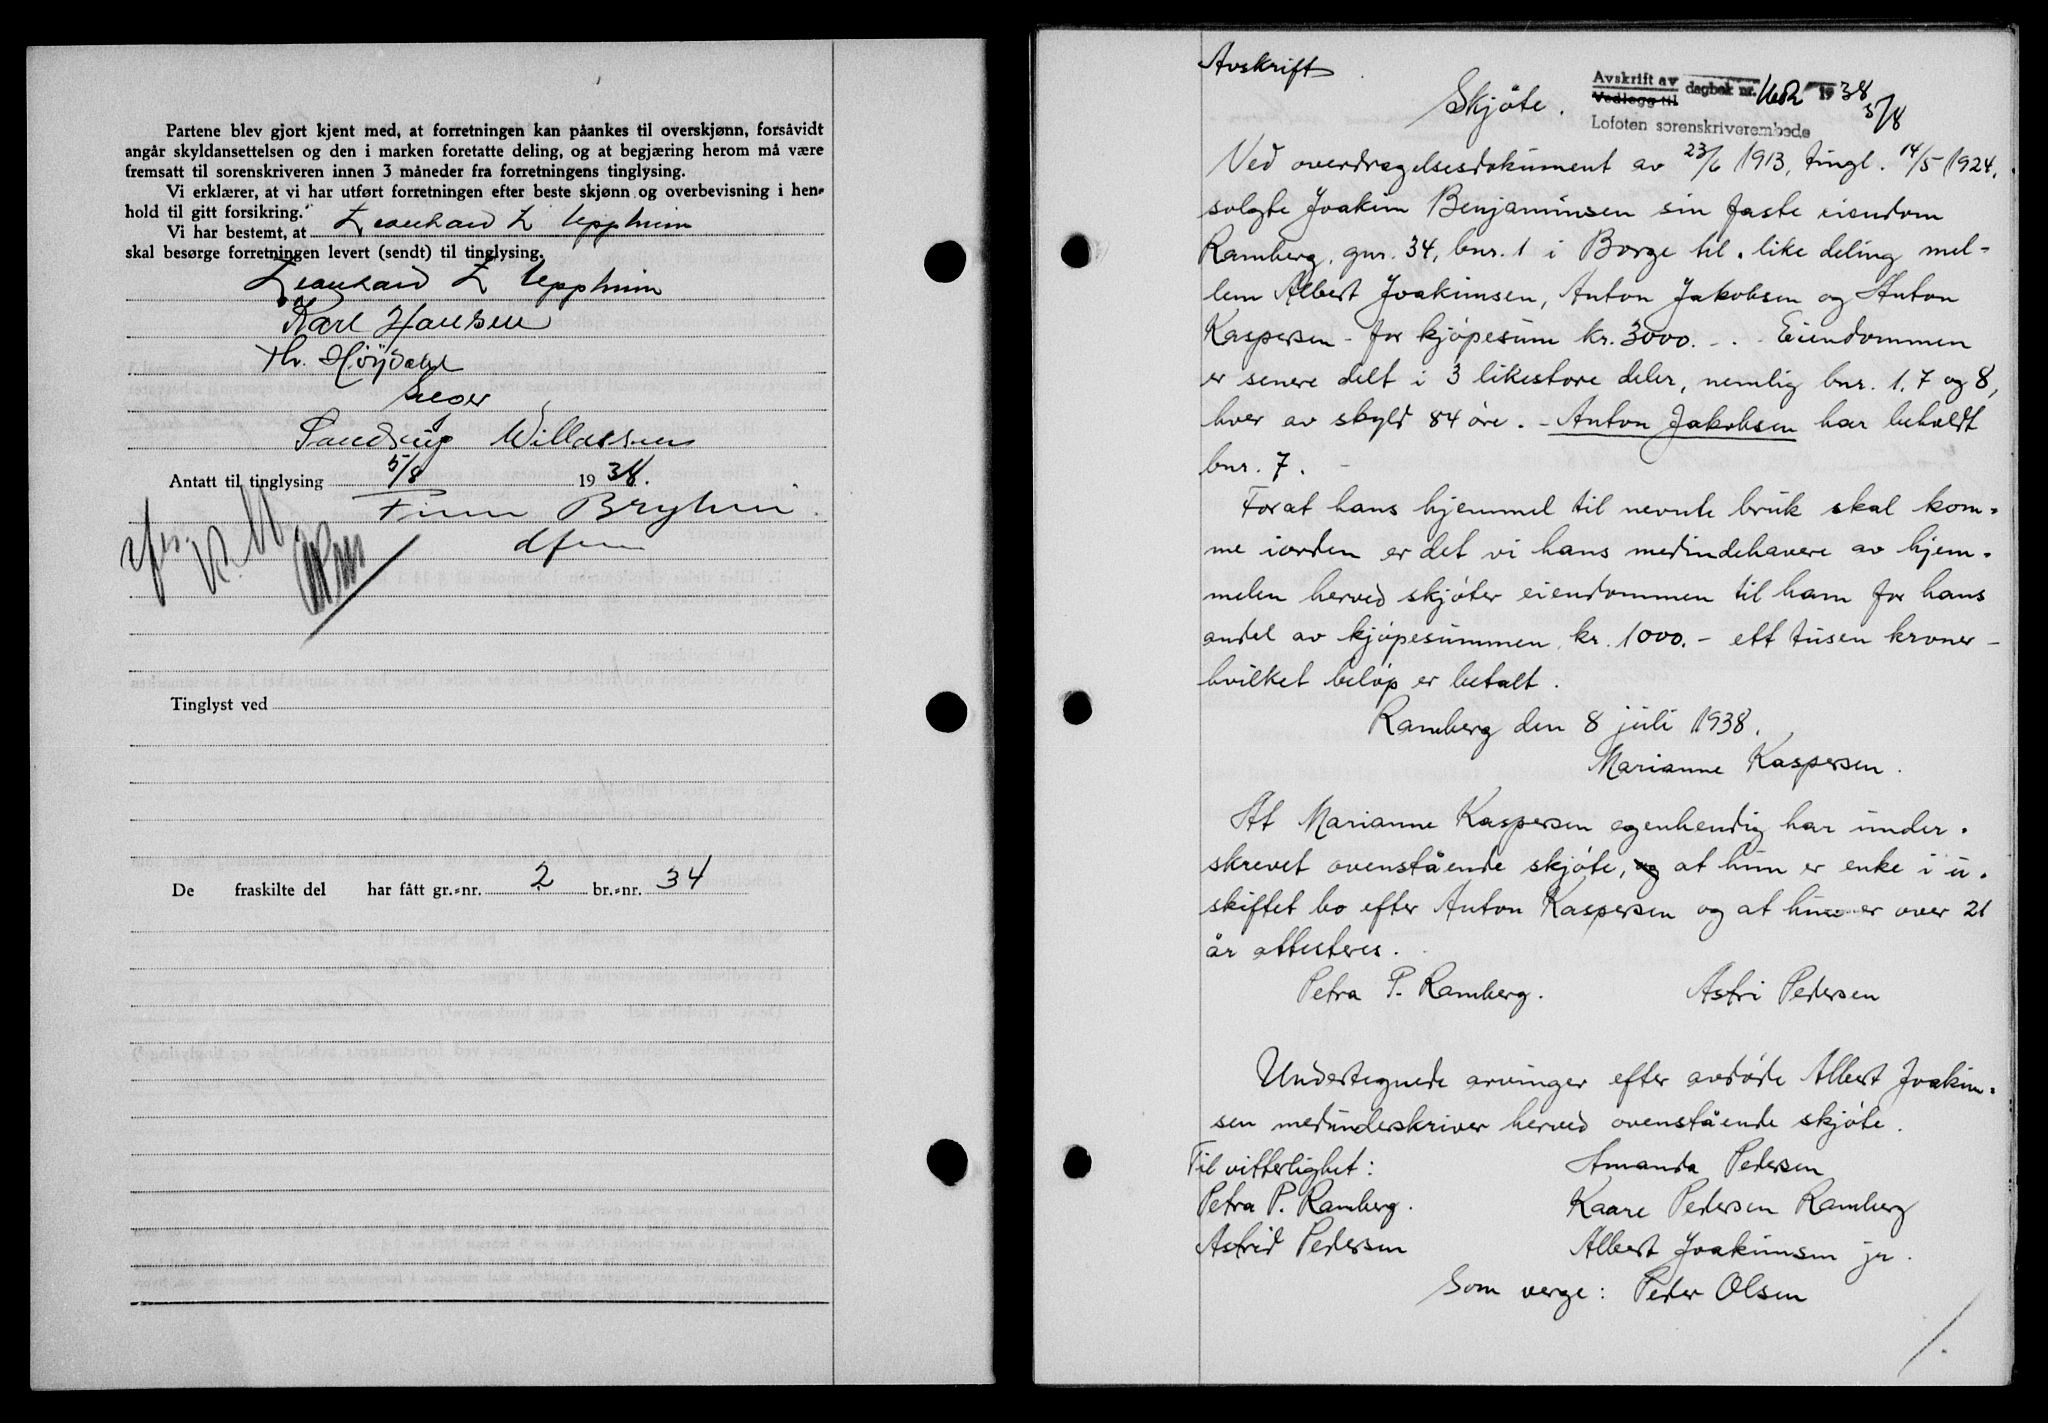 Partene blev gjort kjent med, at forretningen kan påankes til overskjønn, forsåvidt
angår skyldansettelsen og den i marken foretatte deling, og at begjæring herom må være
fremsatt til sorenskriveren innen 3 måneder fra forretningens tinglysing.
Vi erklærer, at vi har utført forretningen efter beste skjønn og overbevisning i hen-
hold til gitt forsikring.
Vi har bestemt, at Leonhard L Uppheim
skal besørge forretningen levert (sendt) til tinglysing.
Leonhard L Uppheim
Karl Hansen
Th. Höydahl
Willassen
Antatt til tinglysing 5/8 1938.
Finn Bryhni
Tinglyst ved
De fraskilte del har fått gr.-nr. 2 br.-nr. 34
Avskrift
Skjöte.
Avskrift av
Vedlegg til dagbok nr. 1938
5/8
Lofoten sorenskriverembede
Ved overdragelsesdokument av 23/6 1913, tingl. 14/5 1924,
solgte Joakim Benjaminsen sin faste eiendom
Ramberg, gnr. 34, bnr. 1 i Borge til like deling mel-
lem Albert Joakimsen, Anton Jakobsen og Anton
Kaspersen - for kjöpesum kr. 3000. - . Eiendommen
er senere delt i 3 likestore deler, nemlig bnr. 1, 7 og 8,
hver av skyld 84 öre. - Anton Jakobsen har beholdt
bnr. 7. -
Forat hans hjemmel til nevnte bruk skal kom-
me iorden er det vi hans medindehavere av hjem-
melen herved skjöter eiendommen til ham for hans
andel av kjöpesummen, kr. 1000. - ett tusen kroner -
hvilket belöp er betalt.
Ramberg den 8 juli 1938.
Marianne Kaspersen.
At Marianne Kaspersen egenhendig har under-
skrevet ovenstående skjöte, og at hun er enke i u-
skiftet bo efter Anton Kaspersen og at hun er over 21
år attesteres.
Petra P. Ramberg. Astri Pedersen
Undertegnede arvinger efter avdöde Albert Joakim-
sen medunderskriver herved ovenstående skjöte.
Til vitterlighet: Amanda Pedersen
Petra P. Ramberg. Kaare Pedersen Ramberg
Astrid Pedersen Albert Joakimsen jr.
Som verge: Peder Olsen